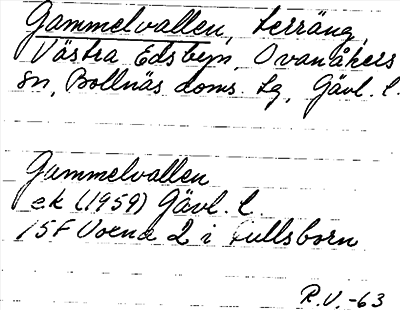 Gammelvallen, terräng,
Västra Edsbyn, Ovanåkers
sn, Bollnäs doms. tg, Gävl. l.
Gammelvallen
ek (1959) Gävl. l.
15F Voxna 2 i Gullsborn
R.V. -63